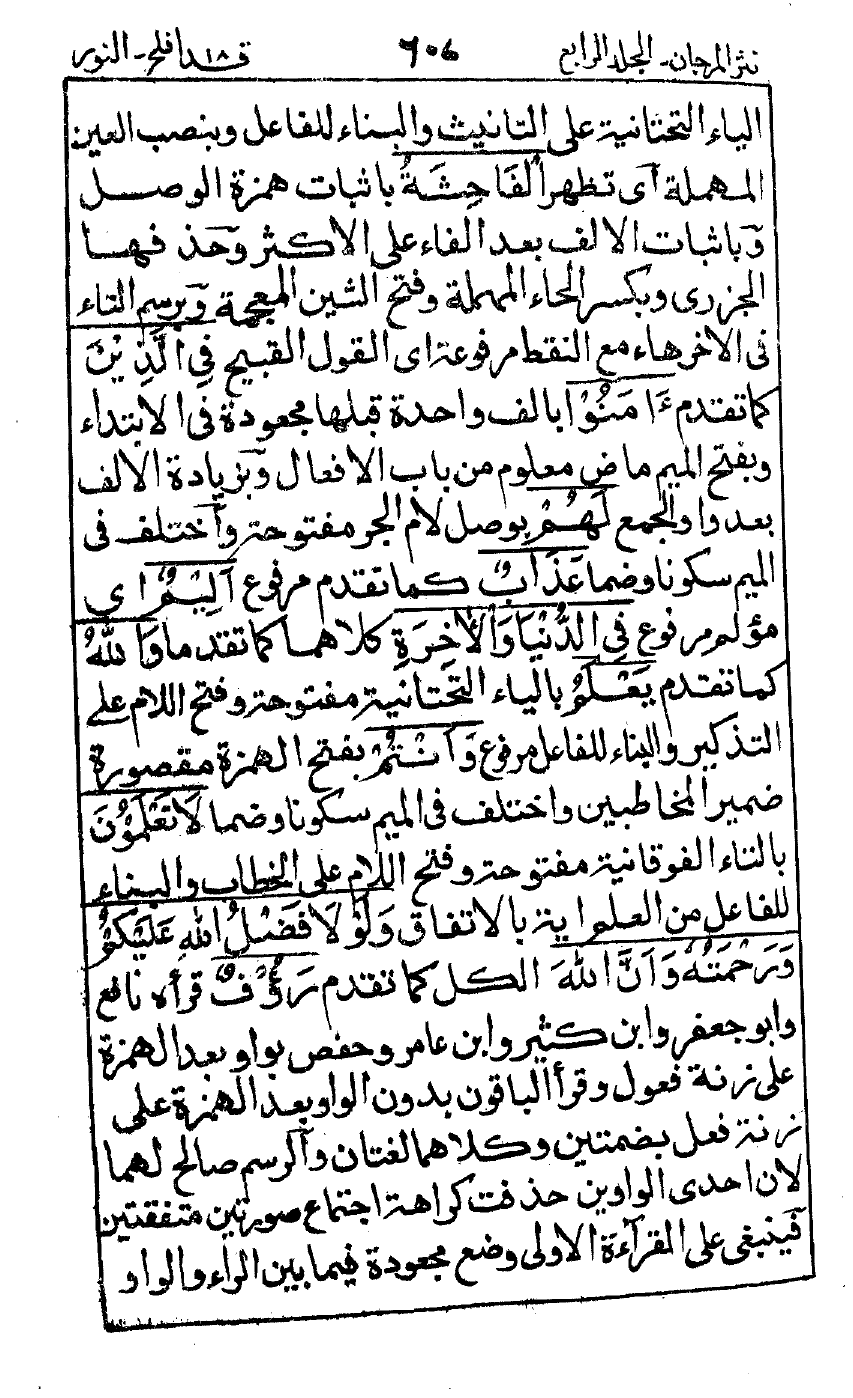 نثر المرجان - المجلد الرابع ٦٠٦ قد افلح ١٨ - النور
الياء التحتانية على التانيث والبناء للفاعل وبنصب العين
المهملة آى تظهر الْفَاحِشَةُ باثبات همزة الوصل
وَباثبات الالف بعد الفاء على الاكثر وحذفها
الجزرى وبكسر الحاء المهملة وفتح الشين المعجمة وَبرسم التاء
فى الاخرهاء مع النقط مرفوعة اى القول القبيح فِي الَّذِيْنَ
كما تقدم ءَامَنُوْا بالف واحدة قبلها مجعودة فى الابتداء
وبفتح الميم ماض معلوم من باب الافعال وَبزيادة الالف
بعد واو الجمع لَهُمْ بوصل لام الجر مفتوحة وآختلف فى
الميم سكونا وضما عَذَابٌ كما تقدم مرفوع اَلِيْمٌ اى
مؤلم مرفوع فِي الدُّنْيَا وَالْاٰخِرَةِ كلاهما كما تقدما وَاللهُ
كما تقدم يَعْلَمُ بالياء التحتانية مفتوحة وفتح اللام على
التذكير والبناء للفاعل مرفوع وَاَنْتُمْ بفتح الهمزة مقصورة
ضمير المخاطبين واختلف فى الميم سكونا وضما لَا تَعْلَمُوْنَ
بالتاء الفوقانية مفتوحة وفتح اللام على الخطاب والبناء
للفاعل من العلم اية بالاتفاق وَلَوْلَا فَضْلُ اللهِ عَلَيْكُمْ
وَرَحْمَتُهٗ وَاَنَّ اللهَ الكل كما تقدم رَؤُفٌ قرأه نافع
وابو جعفر وابن كثير وابن عامر وحفص بواو بعد الهمزة
على زنة فعول وقرأ الباقون بدون الواو بعد الهمزة على
زنة فعل بضمتين وكلاهما لغتان وآلرسم صالح لهما
لان احدى الواوين حذفت كراهة اجتماع صورتين متفقتين
فَينبغى على القرآءة الاولى وضع مجعودة فيما بين الراء والواو